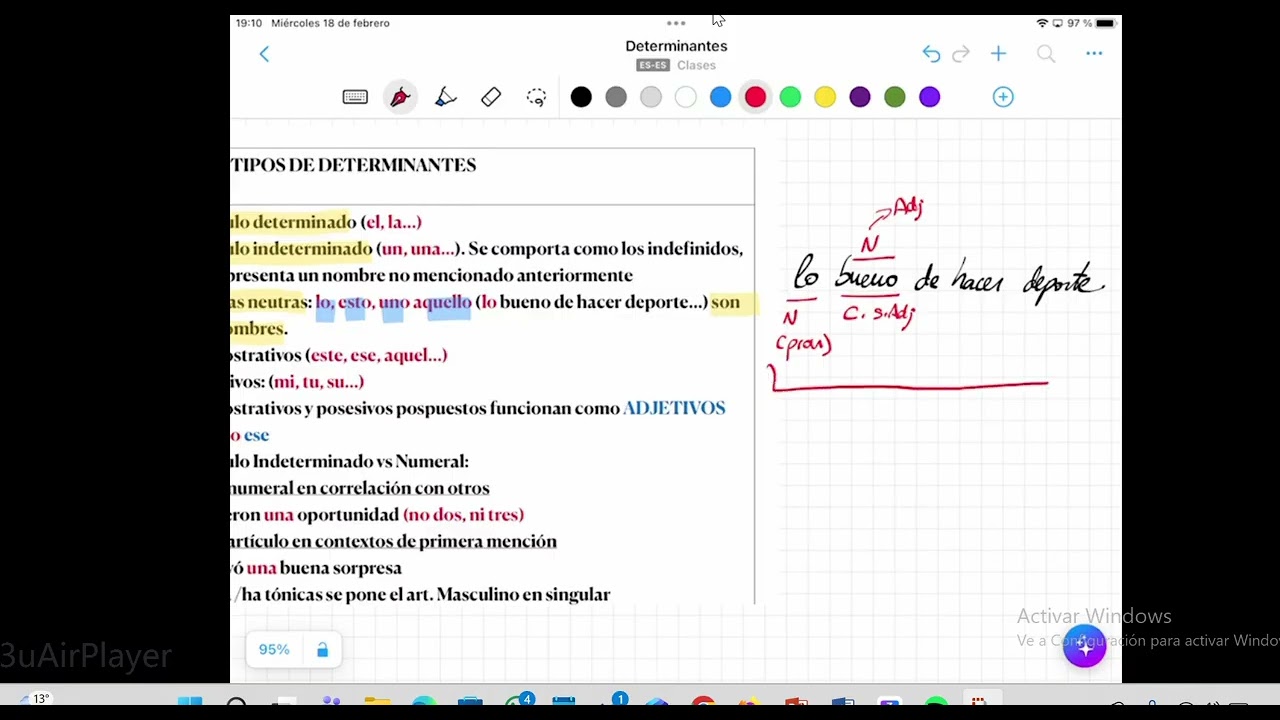 19:10 Miércoles 18 de febrero
97 %
Determinantes
ES-ES Clases
TIPOS DE DETERMINANTES
ulo determinado (el, la...)
ulo indeterminado (un, una...). Se comporta como los indefinidos,
presenta un nombre no mencionado anteriormente
as neutras: lo, esto, uno aquello (lo bueno de hacer deporte...) son
ombres.
ostrativos (este, ese, aquel...)
ivos: (mi, tu, su...)
ostrativos y posesivos pospuestos funcionan como ADJETIVOS
o ese
ulo Indeterminado vs Numeral:
numeral en correlación con otros
eron una oportunidad (no dos, ni tres)
artículo en contextos de primera mención
vó una buena sorpresa
/ha tónicas se pone el art. Masculino en singular
Adj
N
lo bueno de hacer deporte.
N C. s.Adj
(pron)
95%
Activar Windows
Ve a Configuración para activar Windo
3uAirPlayer
13°
4
1